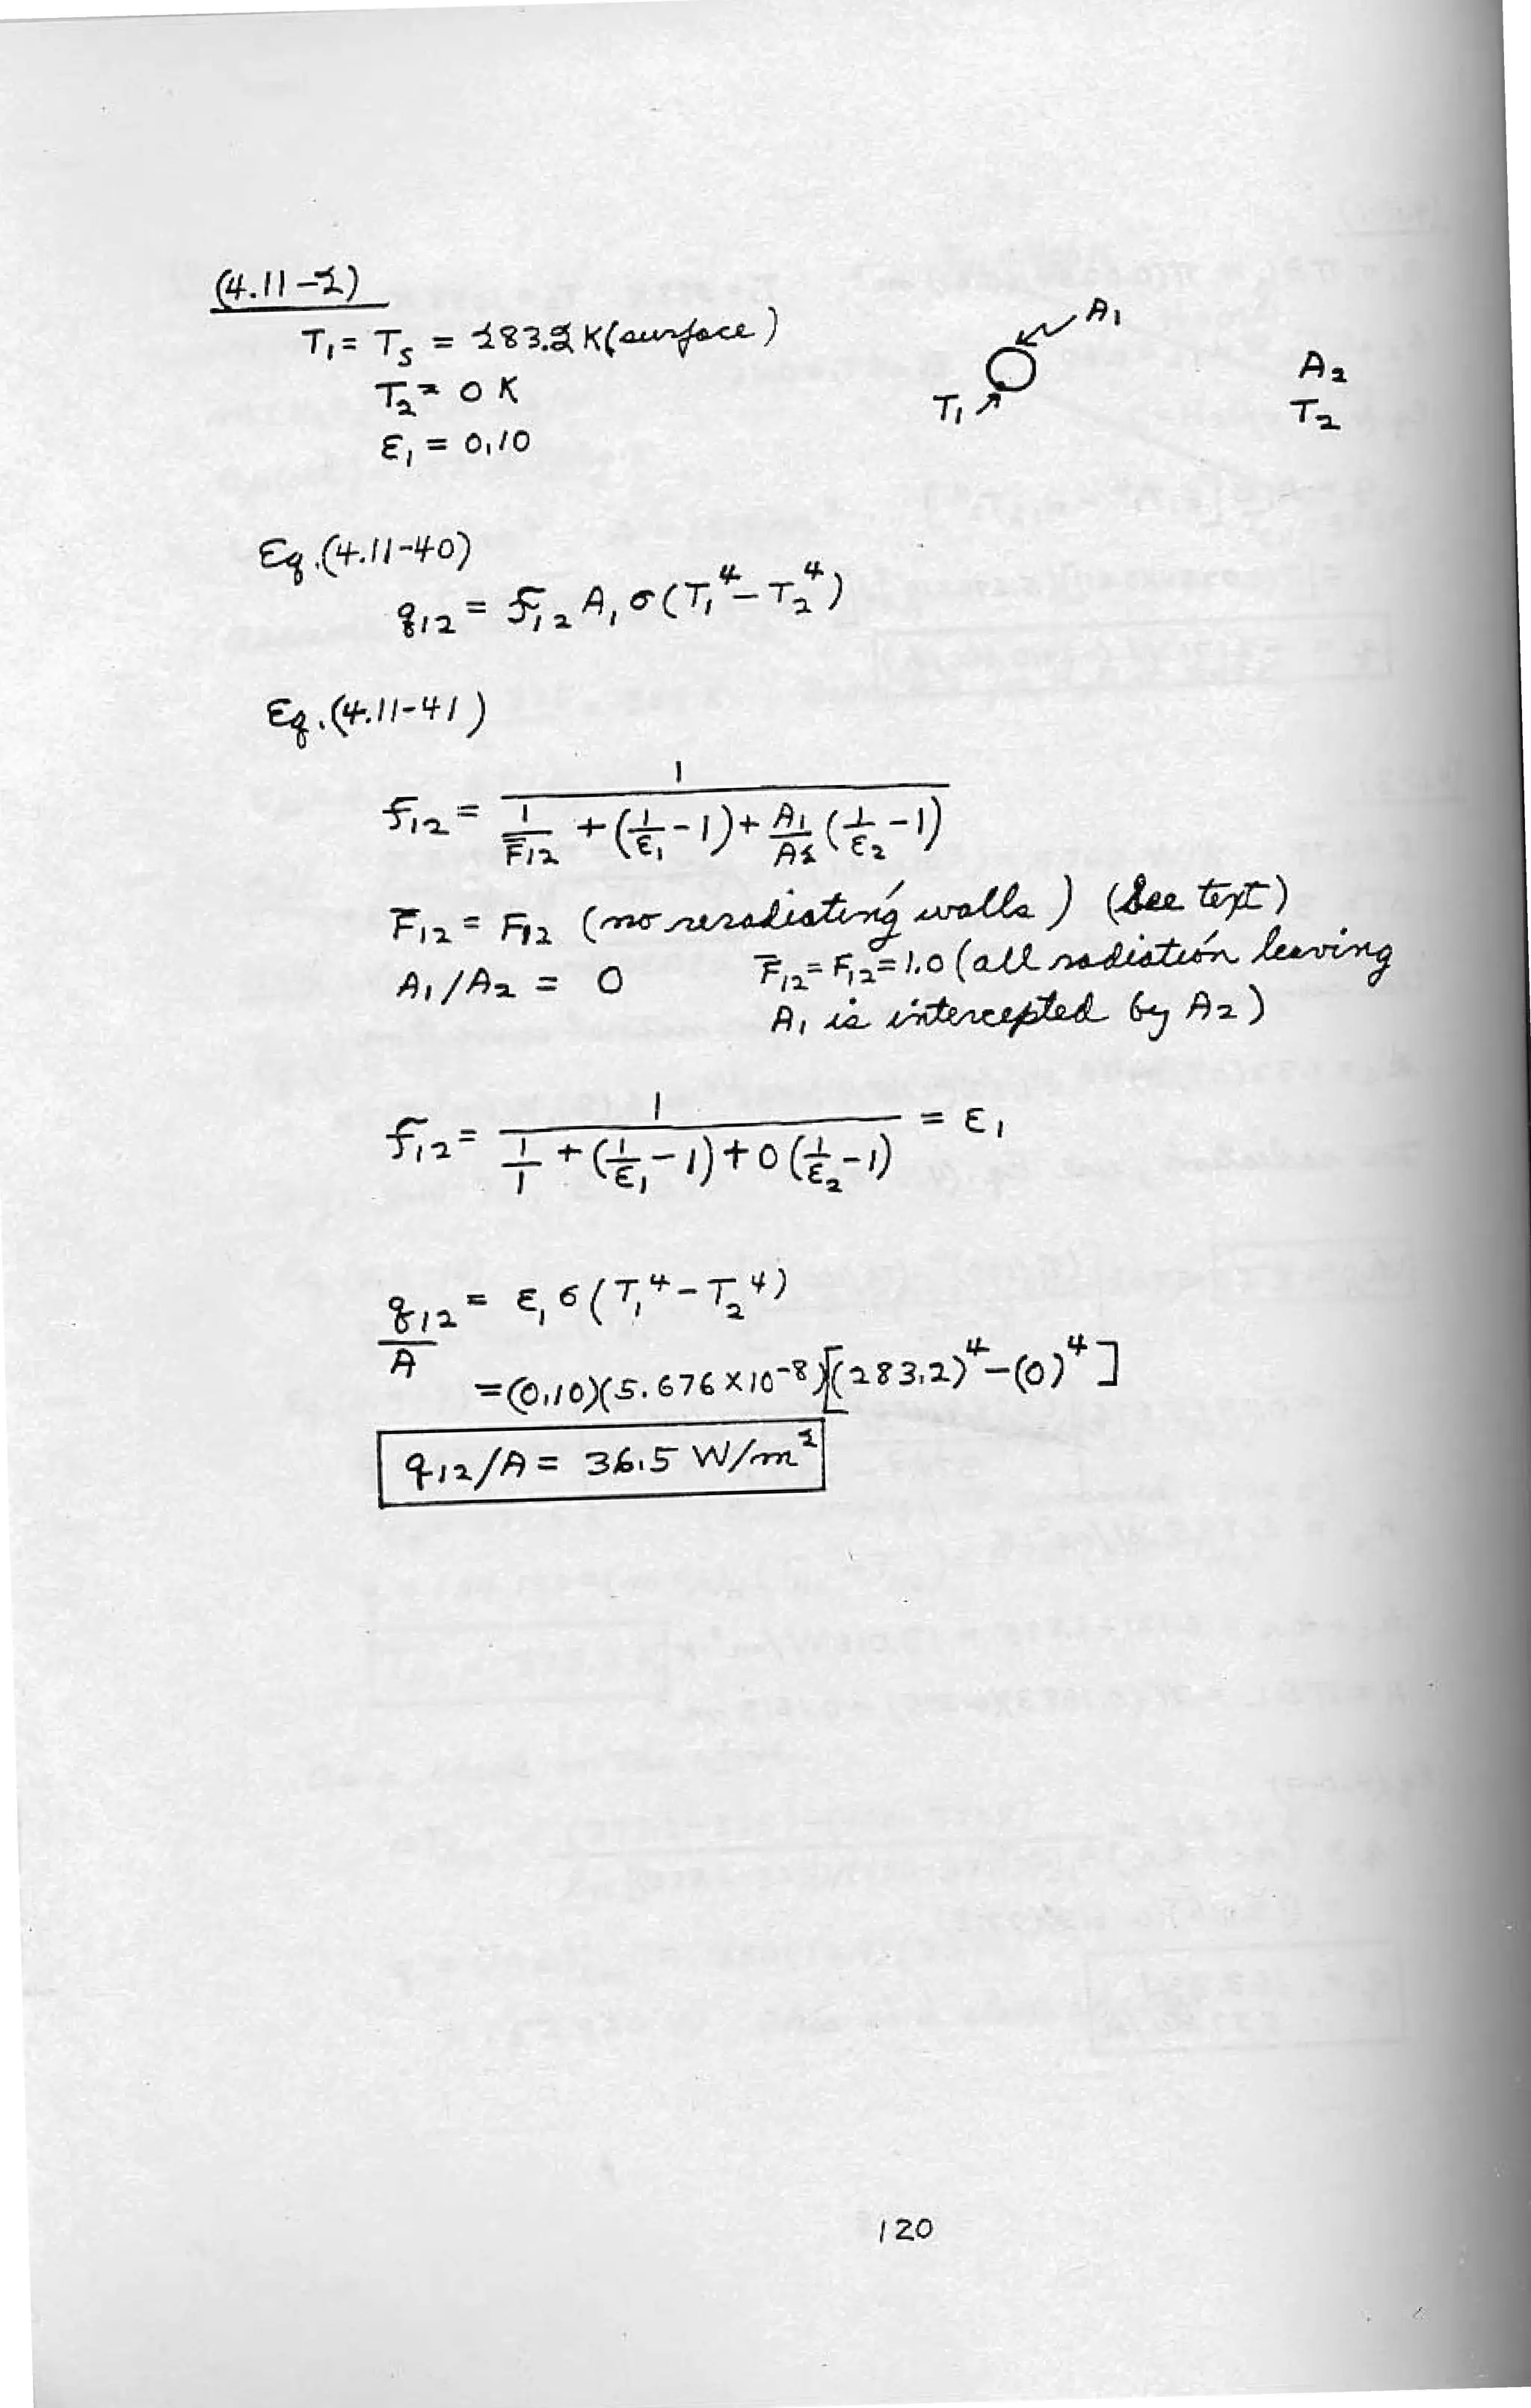 (4.11-2)
T₁ = Tₛ = 283.2 K (surface)
T₂ = 0 K
ε₁ = 0.10
A₁
T₁
A₂
T₂
Eq. (4.11-40)
q₁₂ = ℱ₁₂ A₁ σ (T₁⁴ - T₂⁴)
Eq. (4.11-41)
ℱ₁₂ = 1 / [1/F̄₁₂ + (1/ε₁ - 1) + A₁/A₂ (1/ε₂ - 1)]
F̄₁₂ = F₁₂ (no reradiating walls) (See text)
A₁/A₂ = 0
F̄₁₂ = F₁₂ = 1.0 (all radiation leaving
A₁ is intercepted by A₂)
ℱ₁₂ = 1 / [1/1 + (1/ε₁ - 1) + 0 (1/ε₂ - 1)] = ε₁
q₁₂/A = ε₁ σ (T₁⁴ - T₂⁴)
= (0.10)(5.676 × 10⁻⁸)[(283.2)⁴ - (0)⁴]
q₁₂/A = 36.5 W/m²
120